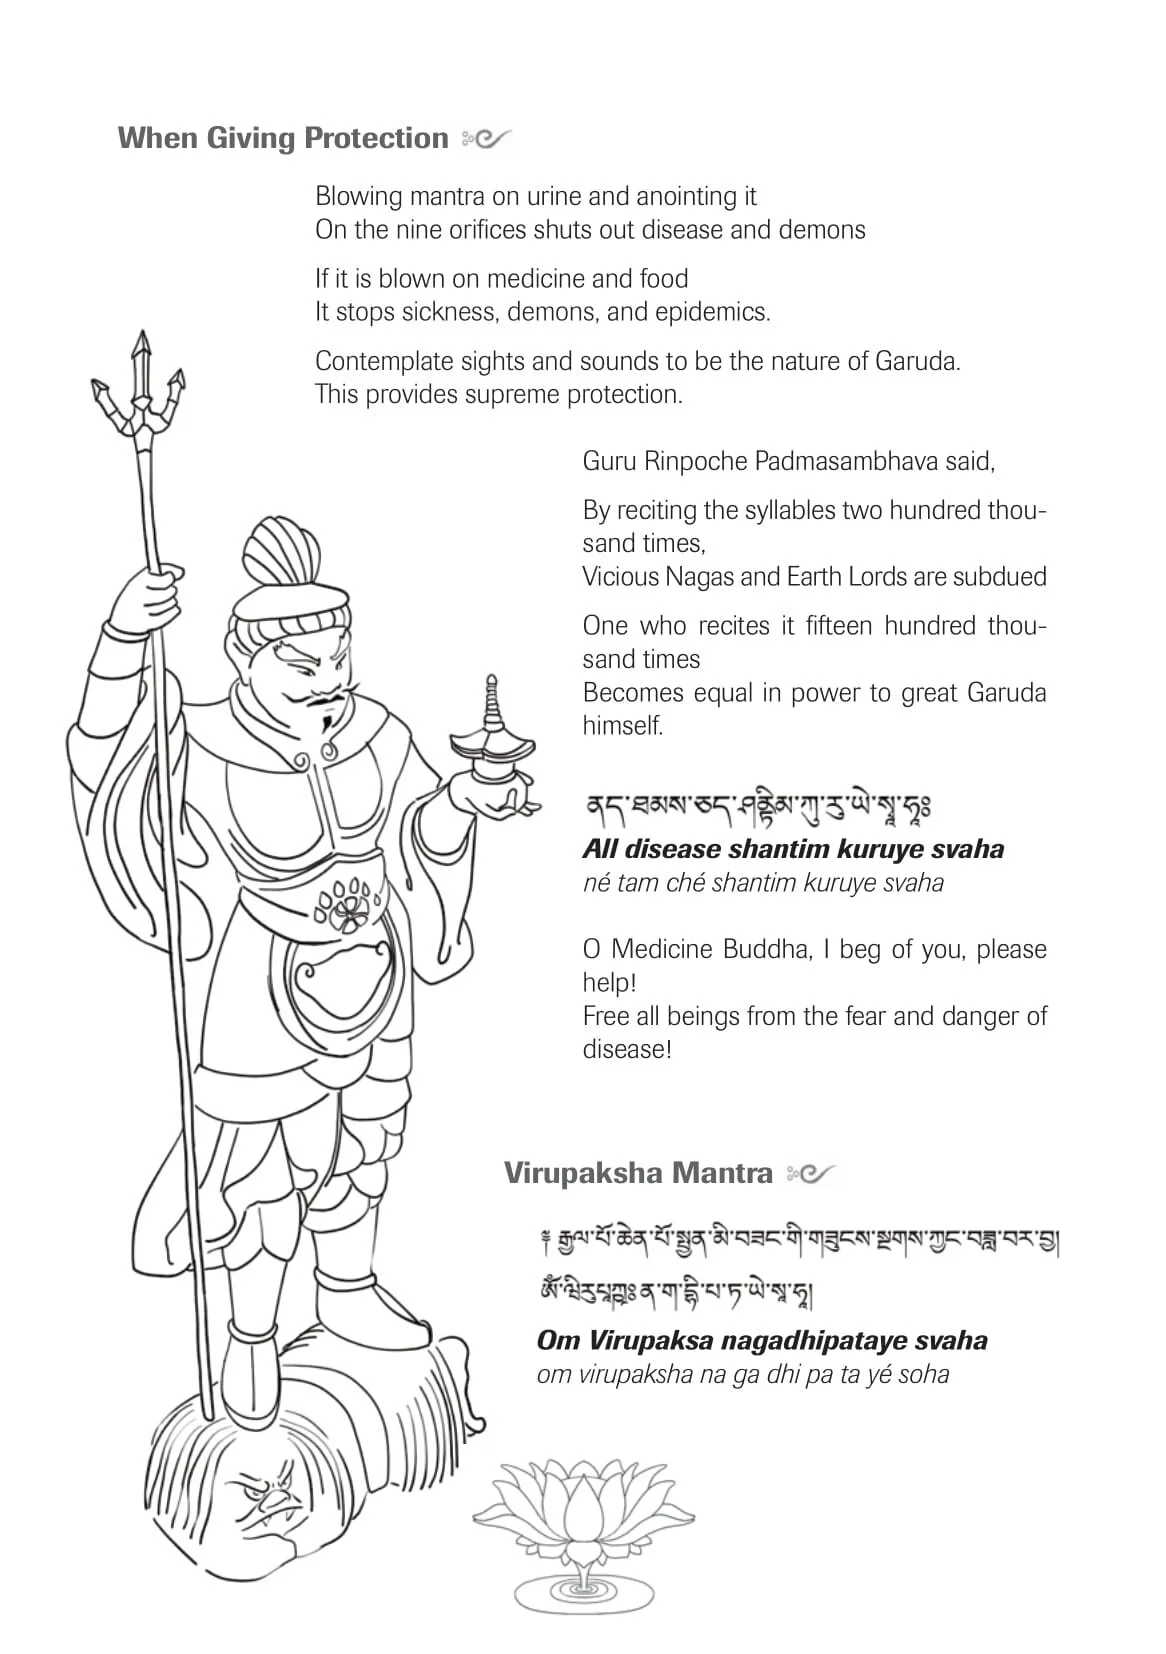 When Giving Protection
Blowing mantra on urine and anointing it
On the nine orifices shuts out disease and demons
If it is blown on medicine and food
It stops sickness, demons, and epidemics.
Contemplate sights and sounds to be the nature of Garuda.
This provides supreme protection.
Guru Rinpoche Padmasambhava said,
By reciting the syllables two hundred thou-
sand times,
Vicious Nagas and Earth Lords are subdued
One who recites it fifteen hundred thou-
sand times
Becomes equal in power to great Garuda
himself.
ནད་ཐམས་ཅད་ཤནྟིམ་ཀུ་རུ་ཡེ་སྭཱ་ཧཱཿ
All disease shantim kuruye svaha
né tam ché shantim kuruye svaha
O Medicine Buddha, I beg of you, please
help!
Free all beings from the fear and danger of
disease!
Virupaksha Mantra
༈ རྒྱལ་པོ་ཆེན་པོ་སྤྱན་མི་བཟང་གི་གཟུངས་སྔགས་ཀྱང་བཟླ་བར་བྱ།
ན་ག་དྷི་པ་ཏ་ཡེ་སྭཱ་ཧཱ།
Om Virupaksa nagadhipataye svaha
om virupaksha na ga dhi pa ta yé soha